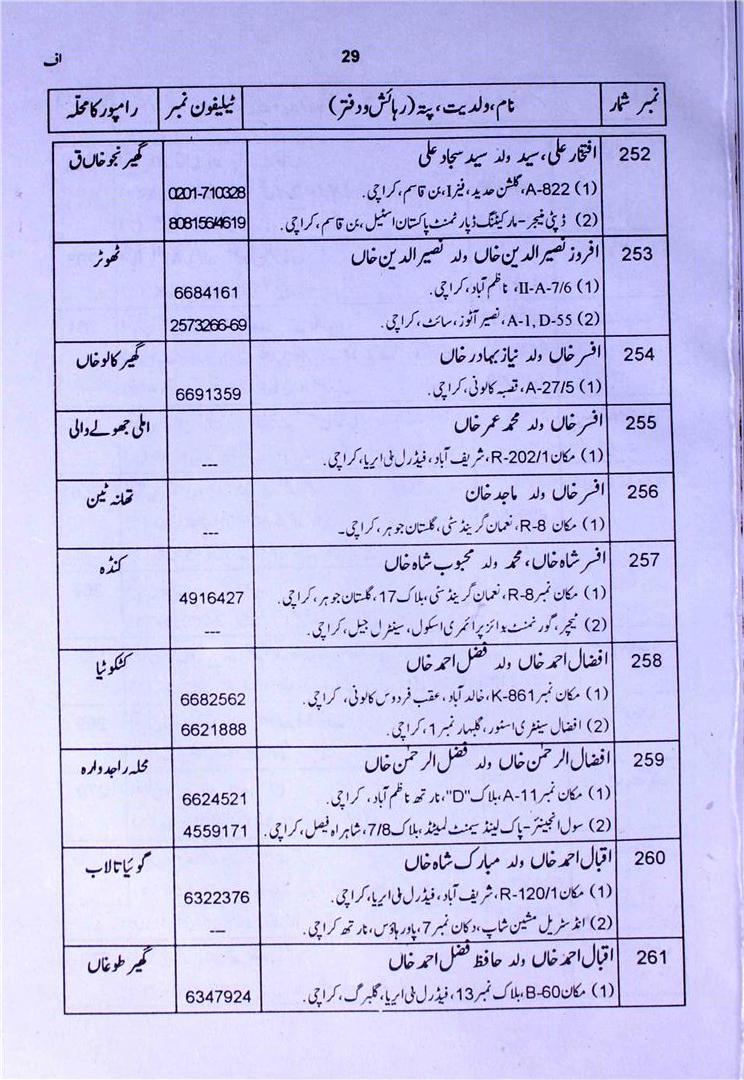 29
اف
نمبر شمار نام، ولدیت، پتہ (رہائش ودفتر) ٹیلیفون نمبر رامپور کا محلہ
252 افتخار علی، سید ولد سید سجاد علی گھیر نجو خاں ق
(1) A-822، گلشن حدید، فیز I، بن قاسم، کراچی. 0201-710328
(2) ڈپٹی منیجر - مارکیٹنگ ڈپارٹمنٹ پاکستان اسٹیل، بن قاسم، کراچی. 808156/4619
253 افروز نصیر الدین خاں ولد نصیر الدین خاں ٹھوٹر
(1) II-A-7/6، ناظم آباد، کراچی. 6684161
(2) A-1, D-55، نصیر آٹوز، سائٹ، کراچی. 2573266-69
254 افسر خاں ولد نیاز بہادر خاں گھیر کالو خاں
(1) A-27/5، قصبہ کالونی، کراچی. 6691359
255 افسر خاں ولد محمد عمر خاں املی جھولے والی
(1) مکان R-202/1، شریف آباد، فیڈرل بی ایریا، کراچی. ---
256 افسر خاں ولد ماجد خان تھانہ ٹین
(1) مکان R-8، نعمان گرینڈ سٹی، گلستان جوہر، کراچی۔ ---
257 افسر شاہ خاں، محمد ولد محبوب شاہ خاں کنڈہ
(1) مکان نمبر R-8، نعمان گرینڈ سٹی، بلاک 17، گلستان جوہر، کراچی. 4916427
(2) ٹیچر، گورنمنٹ بوائز پرائمری اسکول، سینٹرل جیل، کراچی. ---
258 افضال احمد خاں ولد فضل احمد خاں کٹکوئیا
(1) مکان نمبر K-861، خالد آباد، عقب فردوس کالونی، کراچی. 6682562
(2) افضال سینٹری اسٹور، گلبہار نمبر 1، کراچی. 6621888
259 افضال الرحمٰن خاں ولد فضل الرحمٰن خاں محلہ راجدوارہ
(1) مکان نمبر A-11، بلاک "D"، نارتھ ناظم آباد، کراچی. 6624521
(2) سول انجینئر - پاک لینڈ سیمنٹ لمیٹڈ، بلاک 7/8، شاہراہ فیصل، کراچی. 4559171
260 اقبال احمد خاں ولد مبارک شاہ خاں گوئیا تالاب
(1) مکان R-120/1، شریف آباد، فیڈرل بی ایریا، کراچی. 6322376
(2) انڈسٹریل مشین شاپ، دکان نمبر 7، پاور ہاؤس، نارتھ کراچی. ---
261 اقبال احمد خاں ولد حافظ فضل احمد خاں گھیر طوغاں
(1) مکان B-60، بلاک نمبر 13، فیڈرل بی ایریا، گلبرگ، کراچی. 6347924